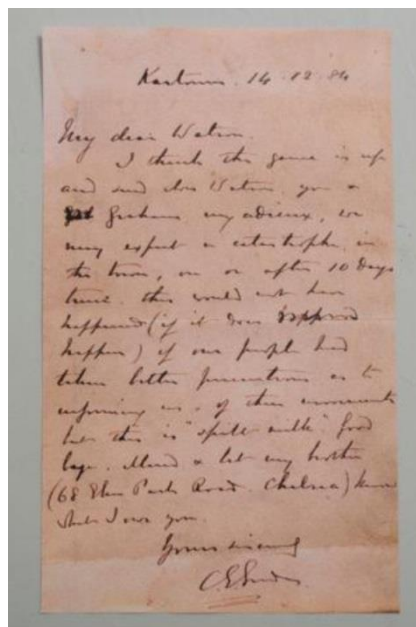 Kartoum. 14.12.84
My dear Watson.
I think the game is up
and send Mrs Watson, you &
Graham my adieux, we
may expect a catastrophe in
the town, on or after 10 days
time. this would not have
happened (if it does
happen) if our people had
taken better precautions as to
informing us of their movements
but this is "spilt milk". Good
bye. Mind & let my brother
(68 Elm Park Road. Chelsea) know
what I owe you.
Yours sincerely